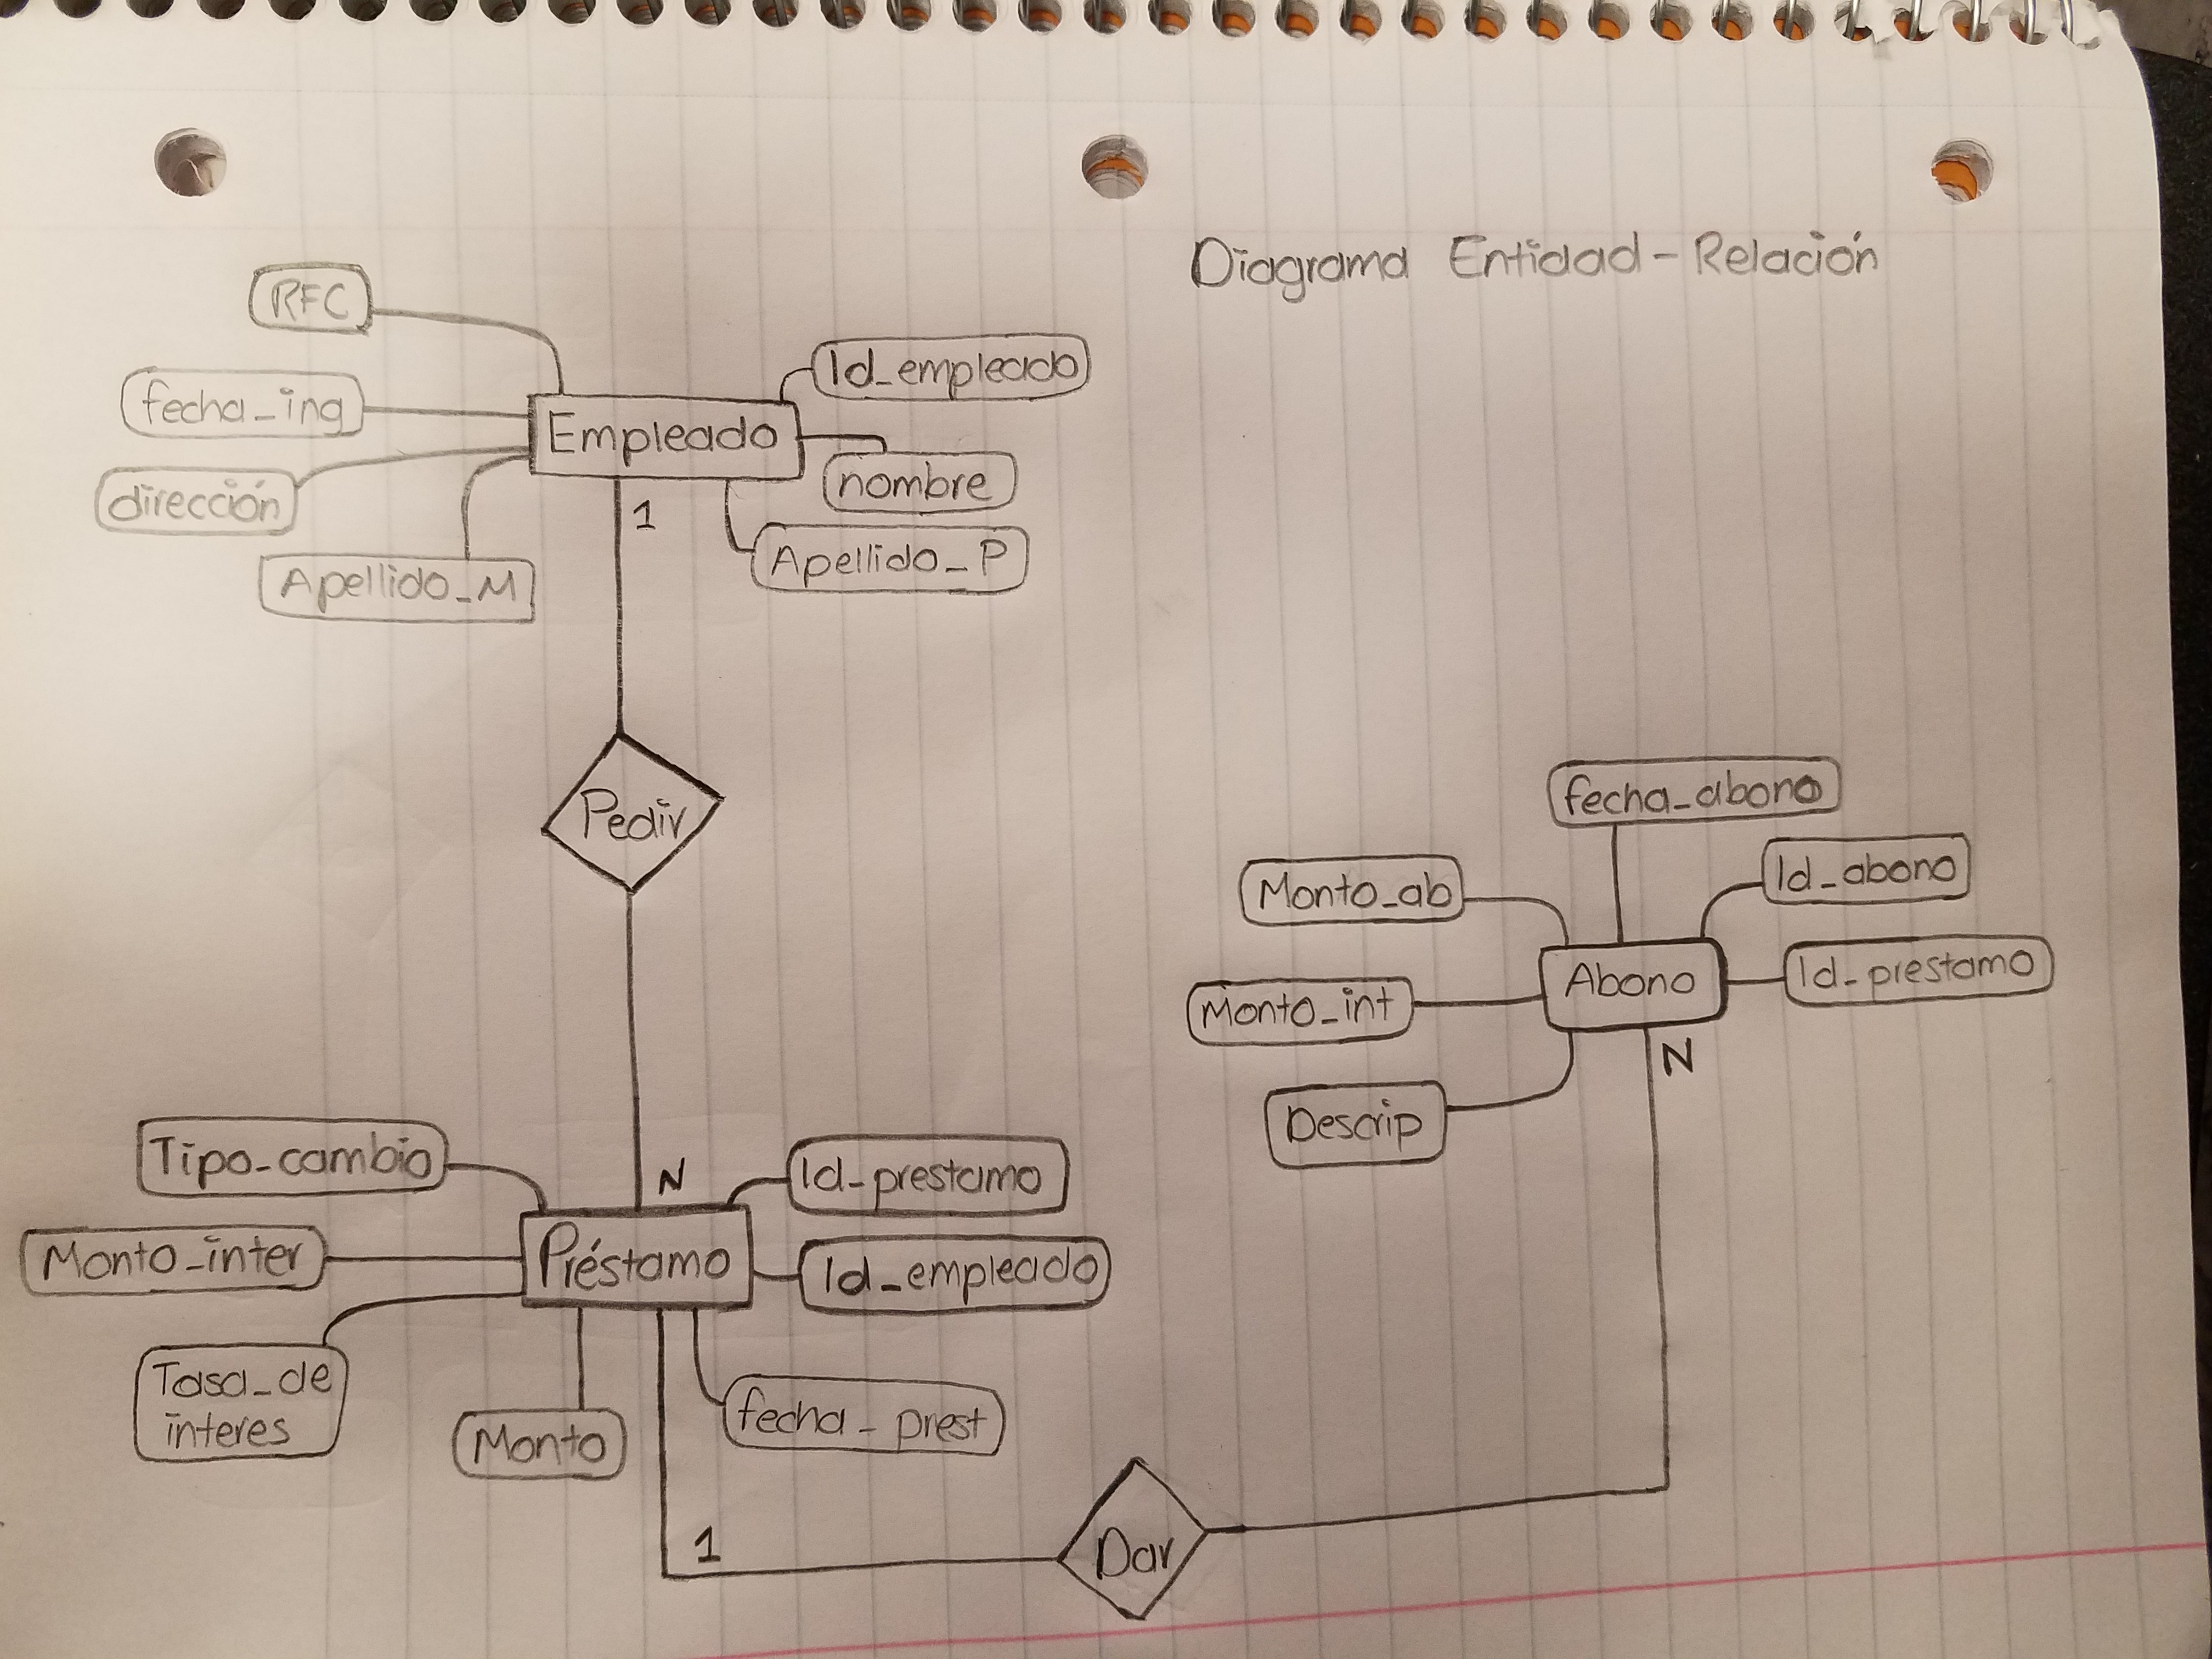 Diagrama Entidad-Relación
RFC
fecha_ing
dirección
Apellido_M
Empleado
Id_empleado
nombre
Apellido_P
1
Pedir
N
Tipo_cambio
Monto_inter
Tasa_de
interes
Monto
Préstamo
Id_prestamo
Id_empleado
fecha_prest
1
Dar
fecha_abono
Monto_ab
Monto_int
Descrip
Abono
Id_abono
Id_prestamo
N